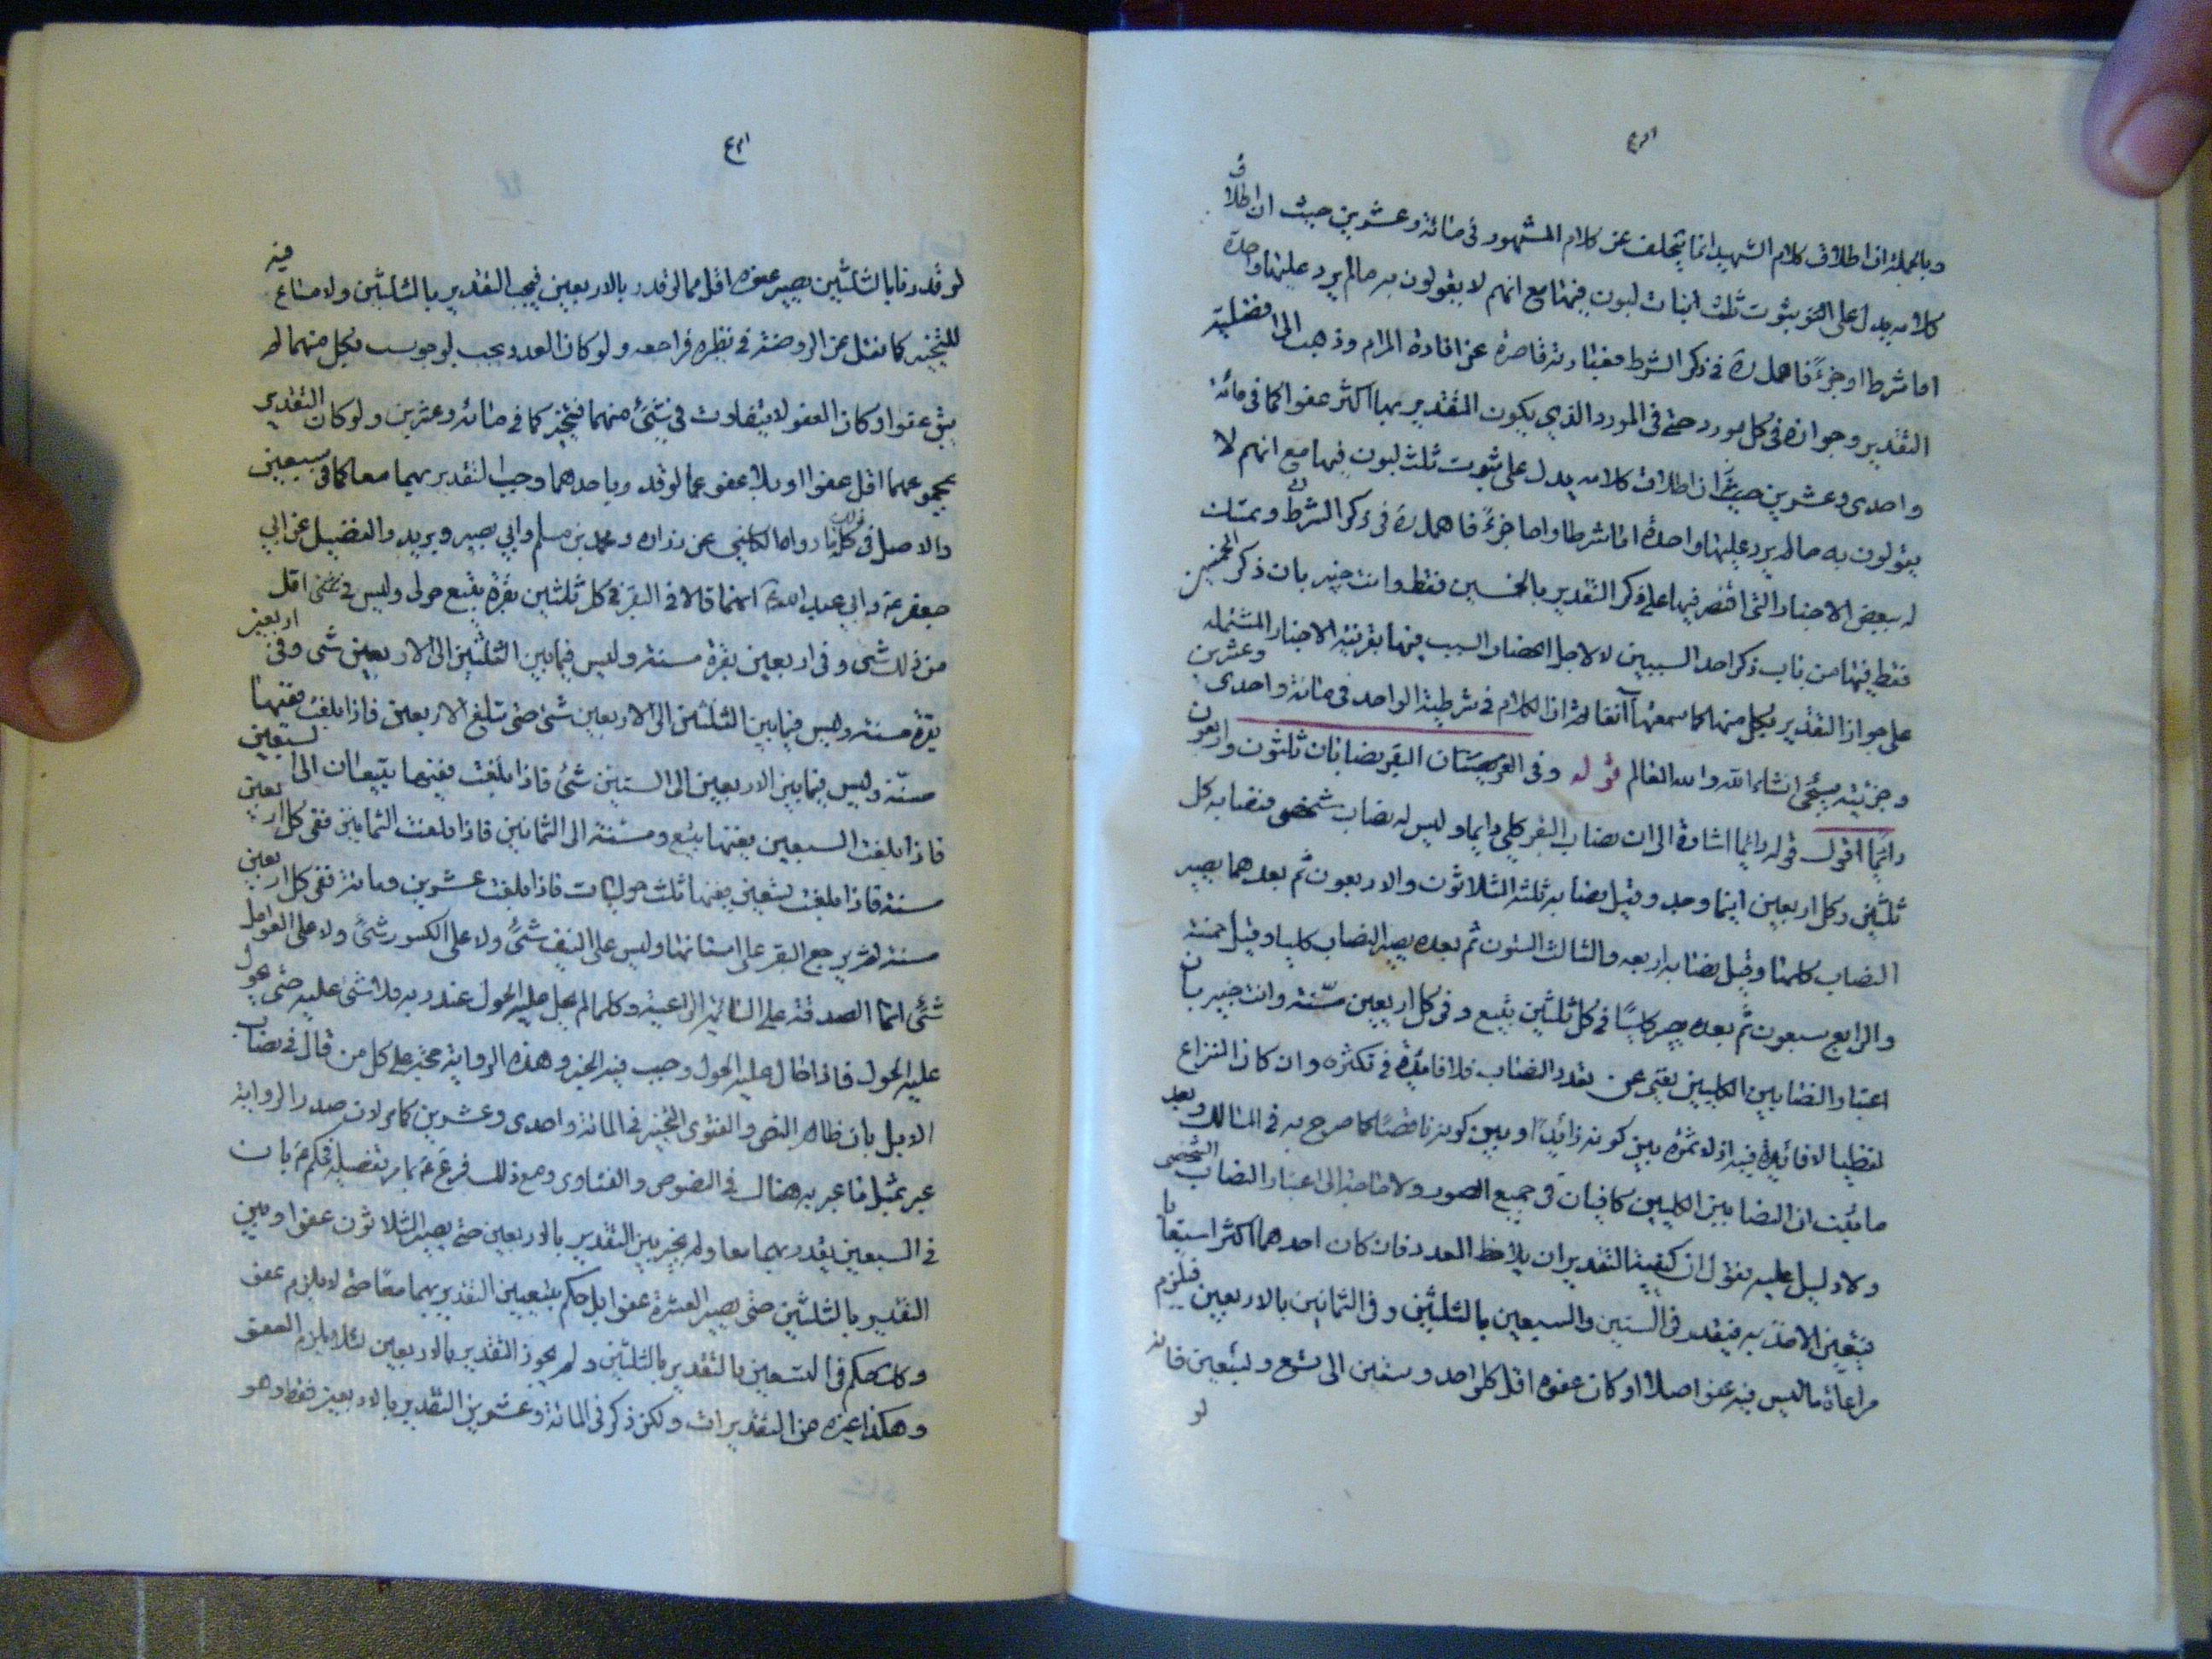 وبالجملة ان اطلاق كلام الشهيد انما يتخلف عن كلام المشهور في مائة وعشرين حيث ان اطلاق
كلامه يدل على ثبوت ثلث ابنات لبون فيها مع انهم لا يقولون به مالم يرد عليها واحدة
اما شرطا او جزءً فاهمله في ذكر الشرط فعبارته قاصرة عن افادة المرام وذهب الى افضلية
التقدير وجوازه في كل مورد حتى في المورد الذي يكون التقدير بها اكثر عفوا كما في مائة
واحدى وعشرين حيث ان اطلاق كلامه يدل على ثبوت ثلث لبون فيها مع انهم لا
يقولون به مالم يرد عليها واحدة اما شرطا واما جزءً فاهمله في ذكر الشرط وتمسك
له ببعض الاخبار التي اقتصر فيها على ذكر التقدير بالخمسين فقط وانت خبير بان ذكر الخمسين
فقط فيها من باب ذكر احد السببين لا لاجل انحصار السبب فيها بقرينة الاخبار المشتملة
على جواز التقدير بكل منهما كما سمعتها آنفا ثم ان الكلام في شرطية الواحد في مائة واحدى وعشرين
وجزئيته سيجئ انشاء الله والله العالم قوله وفي البقر نصابان ثلثون واربعون
دائما اقول قوله دائما اشارة الى ان نصاب البقر كلي دايما وليس له نصاب شخصي فنصابه كل
ثلثين وكل اربعين اينما وجد وقيل نصابه ثلثة الثلاثون والاربعون ثم بعدهما يصير
النصاب كليا وقيل نصابه اربعة والثالث الستون ثم بعده يصير النصاب كليا وقيل خمسة
والرابع سبعون ثم بعده يصير كليًا في كل ثلثين تبيع وفي كل اربعين مسنّة وانت خبير بان
اعتبار النصابين الكليين يغني عن تعدد النصاب فلا فائدة في تكثره وان كان النزاع
لفظيا لا فائدة فيه اذ لا ثمرة بين كونه زائدًا او بين كونه ناقصًا كما صرح به في المسالك وبعد
ما ثبت ان النصابين الكليين كافيان في جميع الصور ولا حاجة الى اعتبار النصاب الشخصي
ولا دليل عليه نقول ان كيفية التقدير ان يلاحظ العدد فان كان احدهما اكثر استيعابا
يتعين الاخذ به فيقدر في الستين والسبعين بالثلثين وفي الثمانين بالاربعين فيلزم
مراعاة ما ليس فيه عفو اصلا او كان عفوه اقل كاحد وستين الى تسع وستعين فانه
لو
لو قدرنا بالثلثين يصير عفوه اقل مما لو قدر بالاربعين فيجب التقدير بالثلثين ولا مساغ فيه
للتخيير كما نقل عن الروضة في نظره فراجعه ولو كان العدد يجب لو حوسب بكل منهما لم
يبق عفو او كان العفو لا يتفاوت في شيئ منهما فيتخير كما في مائة وعشرين ولو كان التقدير
بمجموعهما اقل عفوا او بلا عفو عما لو قدر باحدهما وجب التقدير بهما معا كما في سبعين
والاصل في كل ذلك ما رواه الكليني عن زراره ومحمد بن مسلم وابي بصير وبريد والفضيل عن ابي
جعفر ع وابي عبد الله ع انهما قالا في البقر في كل ثلثين بقرة تبيع حولى وليس في اقل
من ذلك شى وفي اربعين بقرة مسنة وليس فيما بين الثلثين الى الاربعين شى وفي اربعين
بقرة مسنة وليس فيما بين الثلثين الى الاربعين شئ حتى تبلغ الاربعين فاذا بلغت ففيها
مسنّة وليس فيما بين الاربعين الى الستين شئ فاذا بلغت ففيها تبيعان الى السبعين
فاذا بلغت السبعين ففيها تبيع ومسنة الى الثمانين فاذا بلغت الثمانين ففي كل اربعين
مسنة فاذا بلغت تسعين ففيها ثلث حوليات فاذا بلغت عشرين ومائة ففي كل اربعين
مسنة ثم يرجع البقر على اسنانها وليس على النيف شئ ولا على الكسور شئ ولا على العوامل
شئ انما الصدقة على السائمة الراعية وكلما لم يحل عليه الحول عند ربه فلا شئ عليه حتى يحول
عليه الحول فاذا حال عليه الحول وجب فيه الخبر وهذه الرواية حجة على كل من قال في نصاب
الابل بان ظاهر النص والفتوى التخيير في المائة واحدى وعشرين كما مر لان صدر الرواية
عبر بمثل ما عبر به هناك في النصوص والفتاوى ومع ذلك فرع ع بما مر تفصيله فحكم ع بان
في السبعين يقدر بهما معا ولم يخير بين التقدير بالاربعين حتى يصير الثلاثون عفوا وبين
التقدير بالثلثين حتى يصير العشرة عفوا بل حكم بتعيين التقدير بهما معًا حتى لا يلزم عفو
وكك حكم في التسعين بالتقدير بالثلثين ولم يجوز التقدير بالاربعين لئلا يلزم العفو
وهكذا غيره من التقديرات ولكن ذكر في المائة وعشرين التقدير بالاربعين فقط وهو